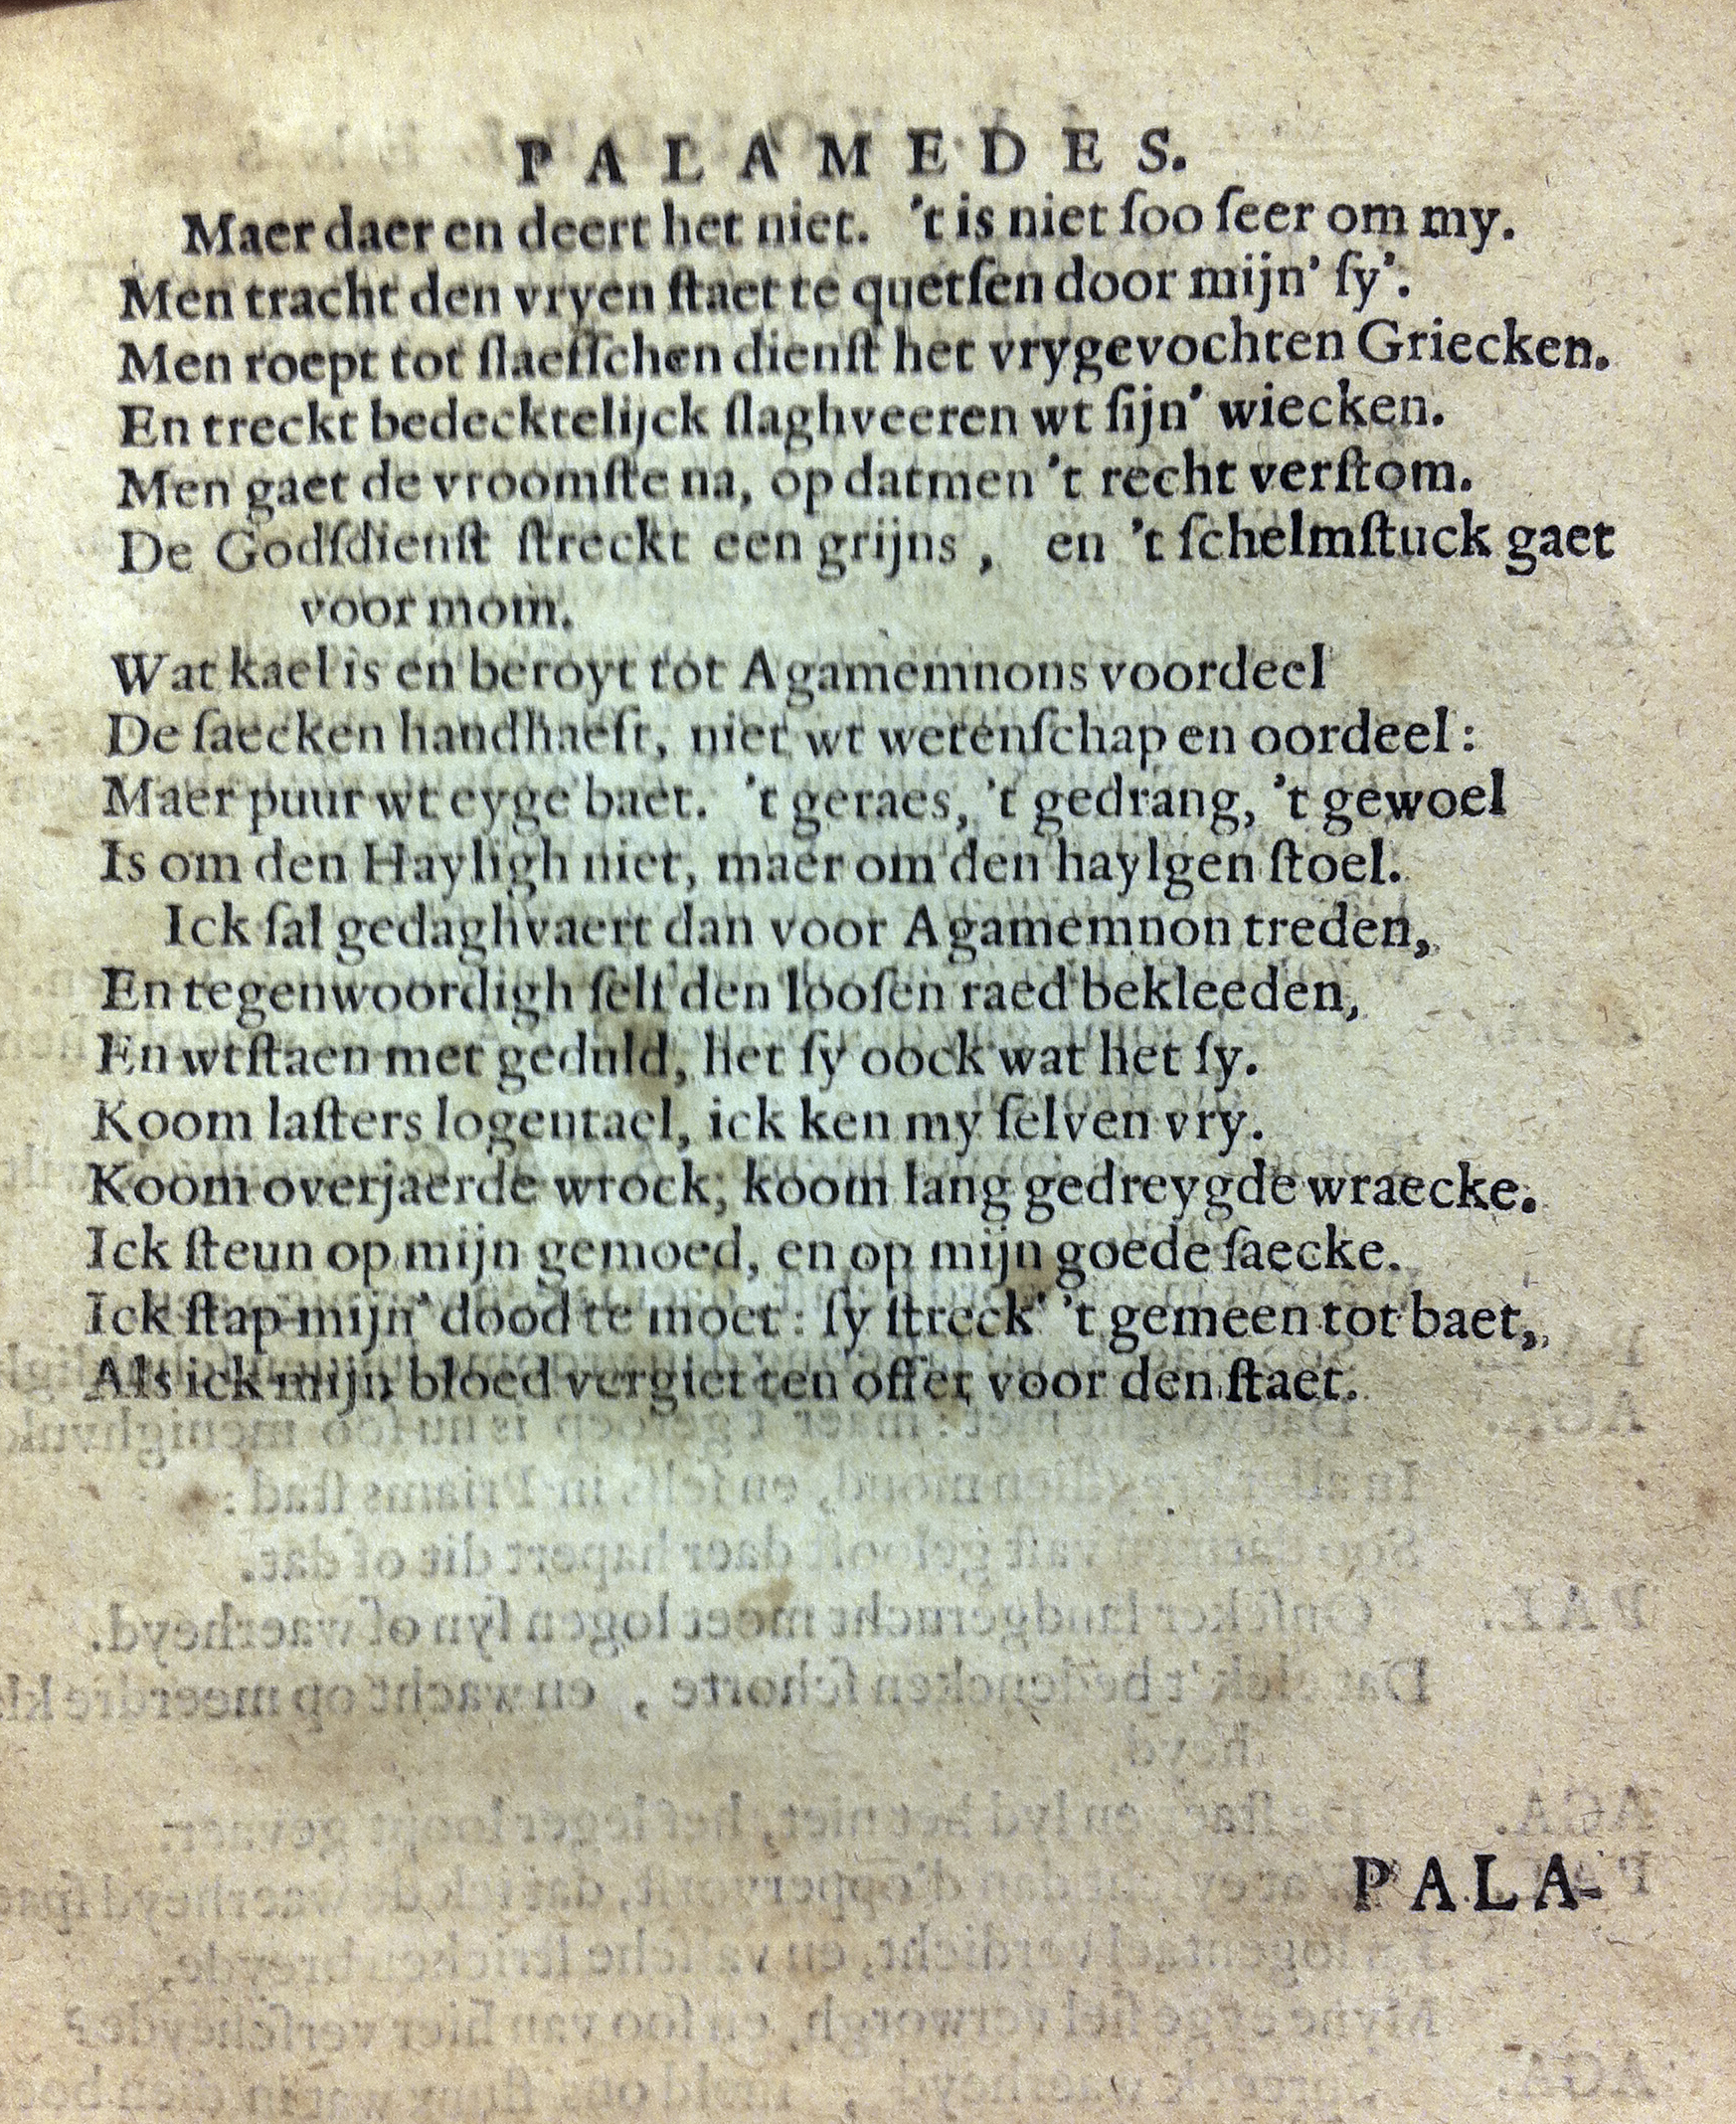 PALAMEDES.
Maer daer en deert het niet. 't is niet ſoo ſeer om my.
Men tracht den vryen ſtaet te quetſen door mijn' ſy'.
Men roept tot ſlaefſchen dienſt het vrygevochten Griecken.
En treckt bedecktelijck ſlaghveeren wt ſijn' wiecken.
Men gaet de vroomſte na, op datmen 't recht verſtom.
De Godſdienſt ſtreckt een grijns, en 't ſchelmſtuck gaet
voor mom.
Wat kael is en beroyt tot Agamemnons voordeel
De ſaecken handhaeft, niet wt wetenſchap en oordeel:
Maer puur wt eyge baet. 't geraes, 't gedrang, 't gewoel
Is om den Hayligh niet, maer om den haylgen ſtoel.
Ick ſal gedaghvaert dan voor Agamemnon treden,
En tegenwoordigh ſelf den looſen raed bekleeden,
En wtſtaen met geduld, het ſy oock wat het ſy.
Koom laſters logentael, ick ken my ſelven vry.
Koom overjaerde wrock, koom lang gedreygde wraecke.
Ick ſteun op mijn gemoed, en op mijn goede ſaecke.
Ick ſtap mijn' dood te moet: ſy ſtreck' 't gemeen tot baet,
Als ick mijn bloed vergiet ten offer voor den ſtaet.
PALA-